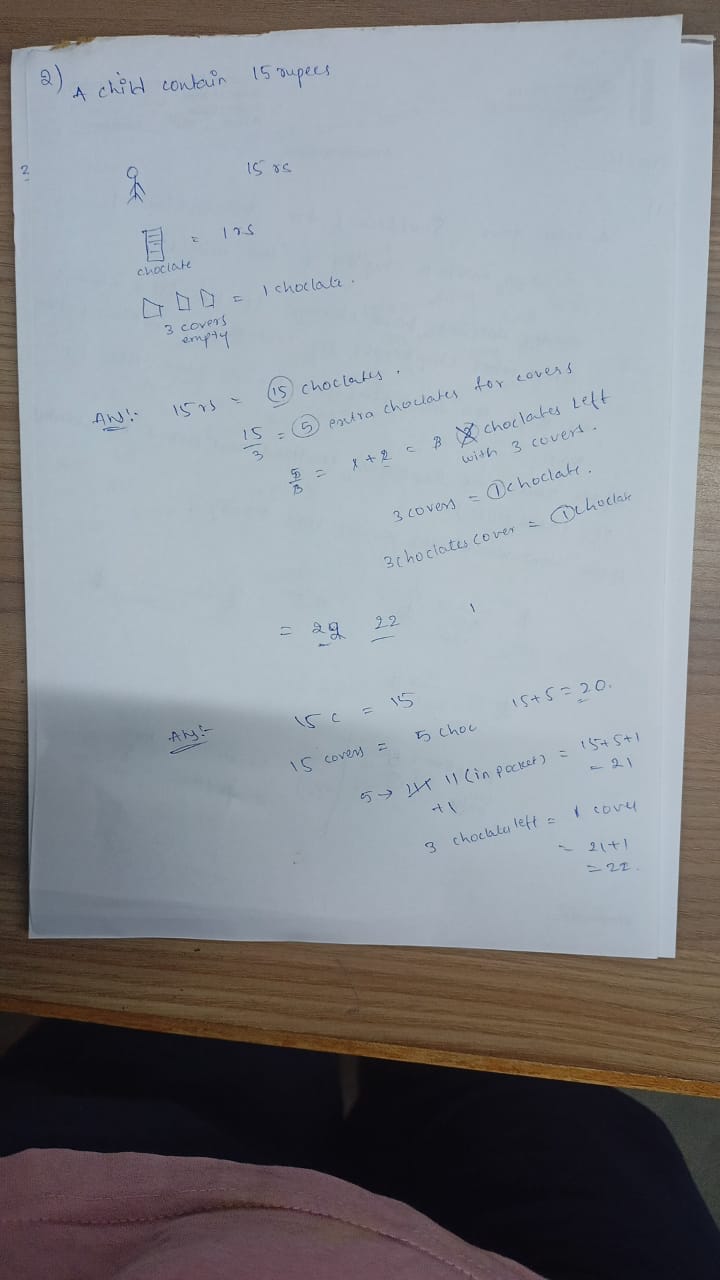 2) A child contain 15 rupees
2
15 rs
= 1 rs
choclate
= 1 choclate.
3 covers
empty
Ans:- 15 rs = 15 choclates.
15/3 = 5 extra choclates for covers
5/3 = 1+2 = 3 choclates left
with 3 covers.
3 covers = 1 choclate.
3 choclates cover = 1 choclate
= 22 22
Ans:- 15 c = 15
15 covers = 5 choc 15+5=20.
5 → 11 (in pocket) = 15+5+1
+1 = 21
3 choclates left = 1 cover
= 21+1
= 22.